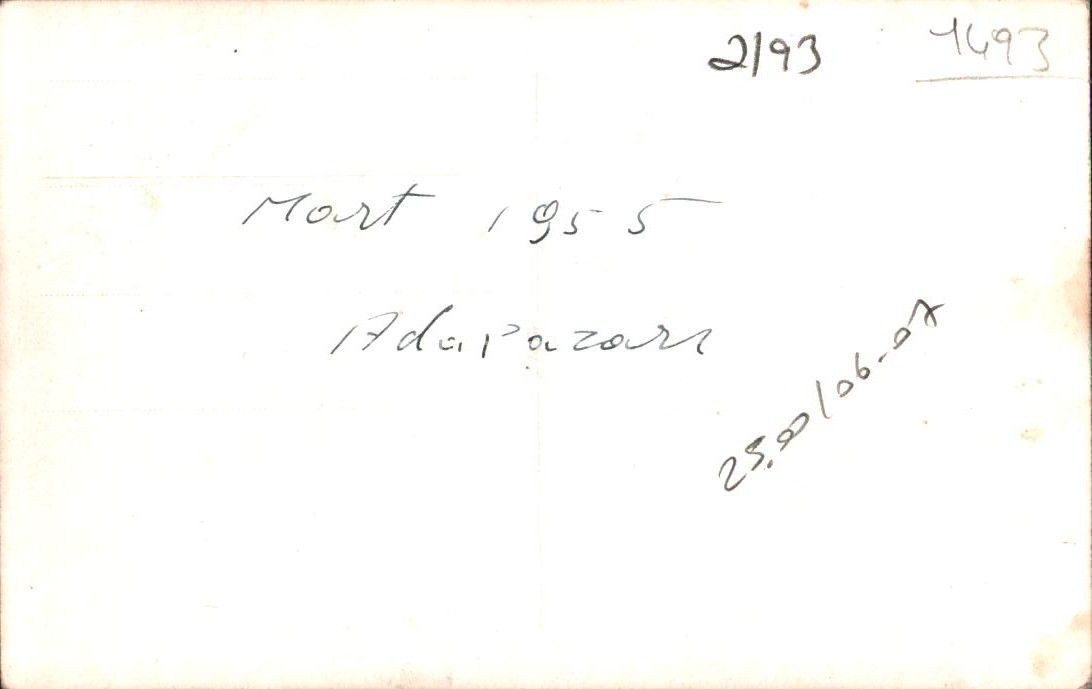 2/93
1493
Mart 1955
Adapazarı
25.00/06-07